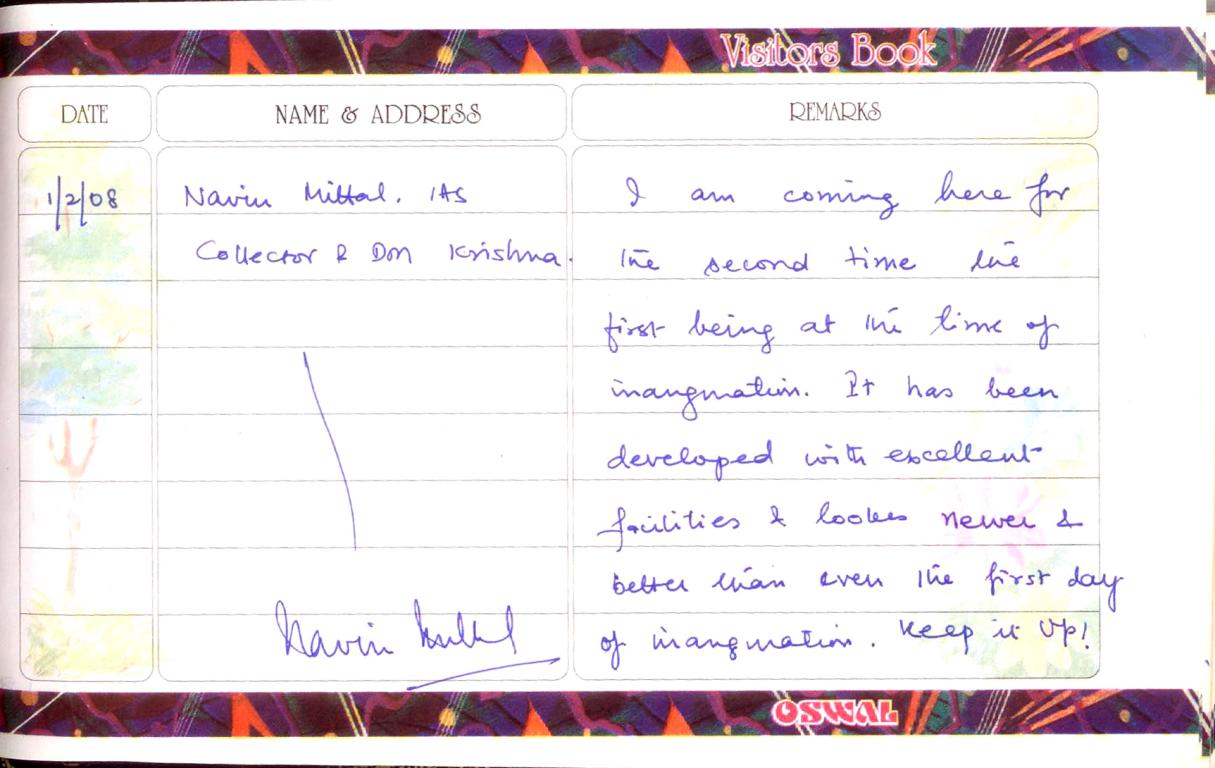 Visitors Book
DATE
NAME & ADDRESS
REMARKS
1/2/08
Navin Mittal. IAS
Collector & DM Krishna.
Navin Mittal
I am coming here for
the second time the
first being at the time of
inauguration. It has been
developed with excellent
facilities & lookes newer &
better than even the first day
of inauguration. Keep it Up!
OSWAL